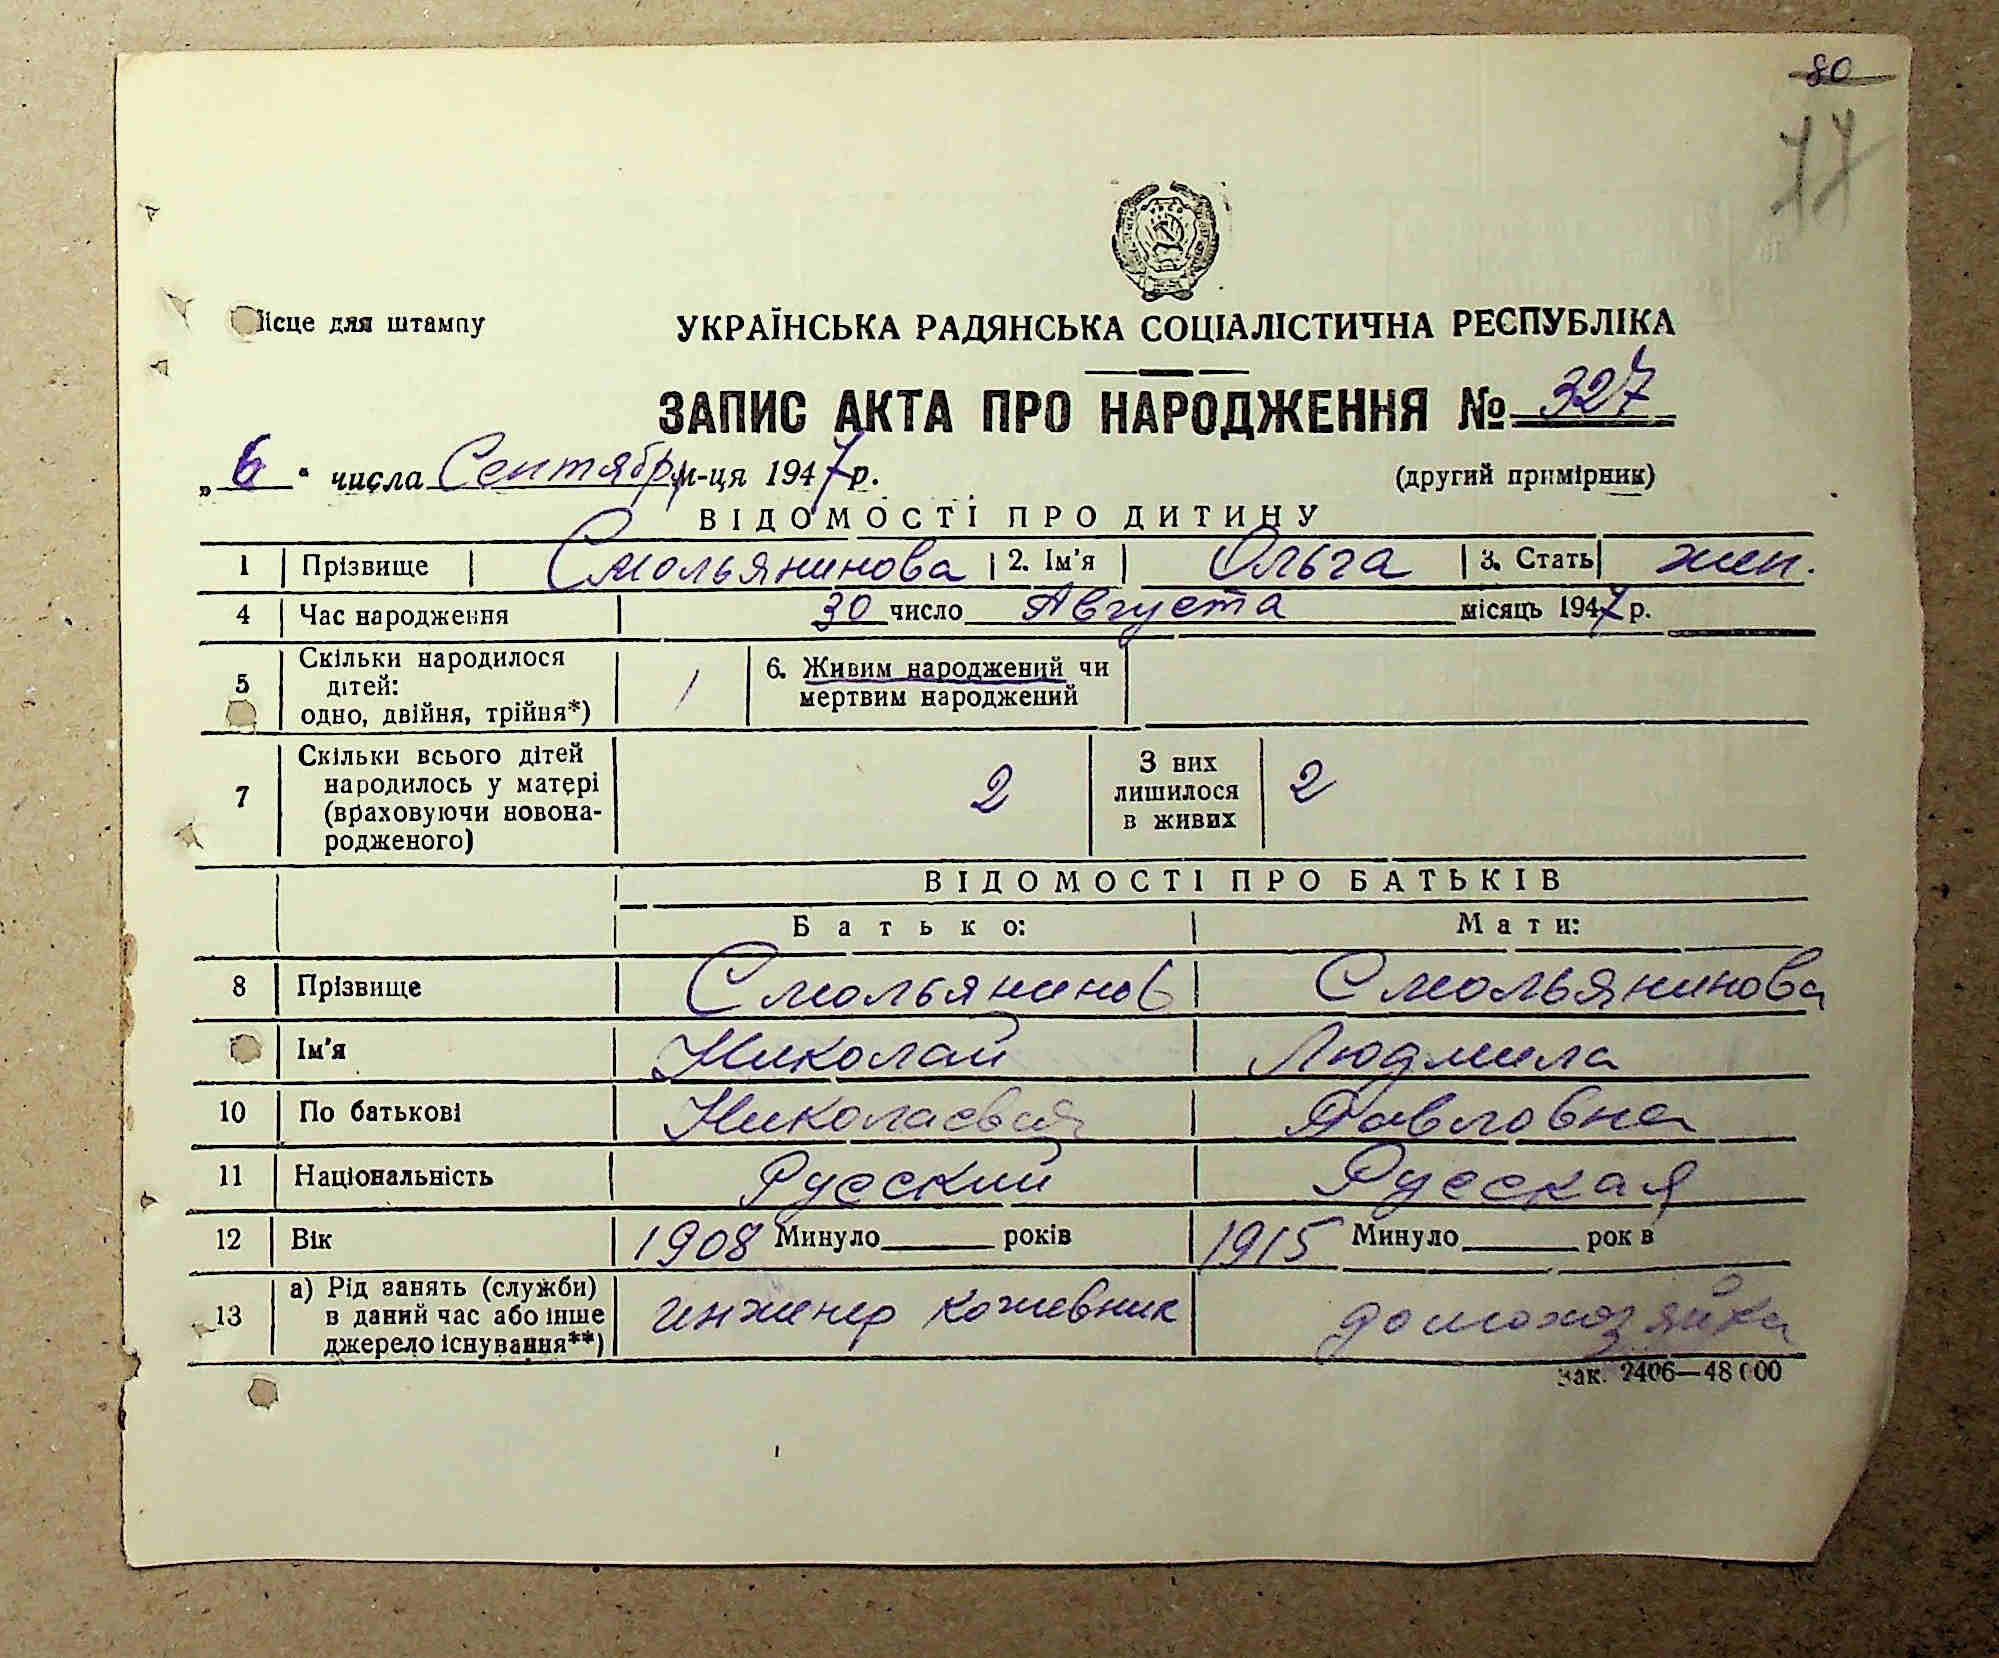 80
77
Місце для штампу
УКРАЇНСЬКА РАДЯНСЬКА СОЦІАЛІСТИЧНА РЕСПУБЛІКА
ЗАПИС АКТА ПРО НАРОДЖЕННЯ № 327
„ 6 “ числа Сентября м-ця 1947 р. (другий примірник)
ВІДОМОСТІ ПРО ДИТИНУ
1 Прізвище Смольянинова 2. Ім'я Ольга 3. Стать жен.
4 Час народження 30 число Августа місяць 1947 р.
5 Скільки народилося дітей: одно, двійня, трійня*) 1 6. Живим народжений чи мертвим народжений
7 Скільки всього дітей народилось у матері (враховуючи новонародженого) 2 З них лишилося в живих 2
ВІДОМОСТІ ПРО БАТЬКІВ
Батько: Мати:
8 Прізвище Смольянинов Смольянинова
Ім'я Николай Людмила
10 По батькові Николаевич Павловна
11 Національність Русский Русская
12 Вік 1908 Минуло ____ років 1915 Минуло ____ рок в
13 а) Рід занять (служби) в даний час або інше джерело існування**) инженер кожевник домохозяйка
Зак. 2406—48000